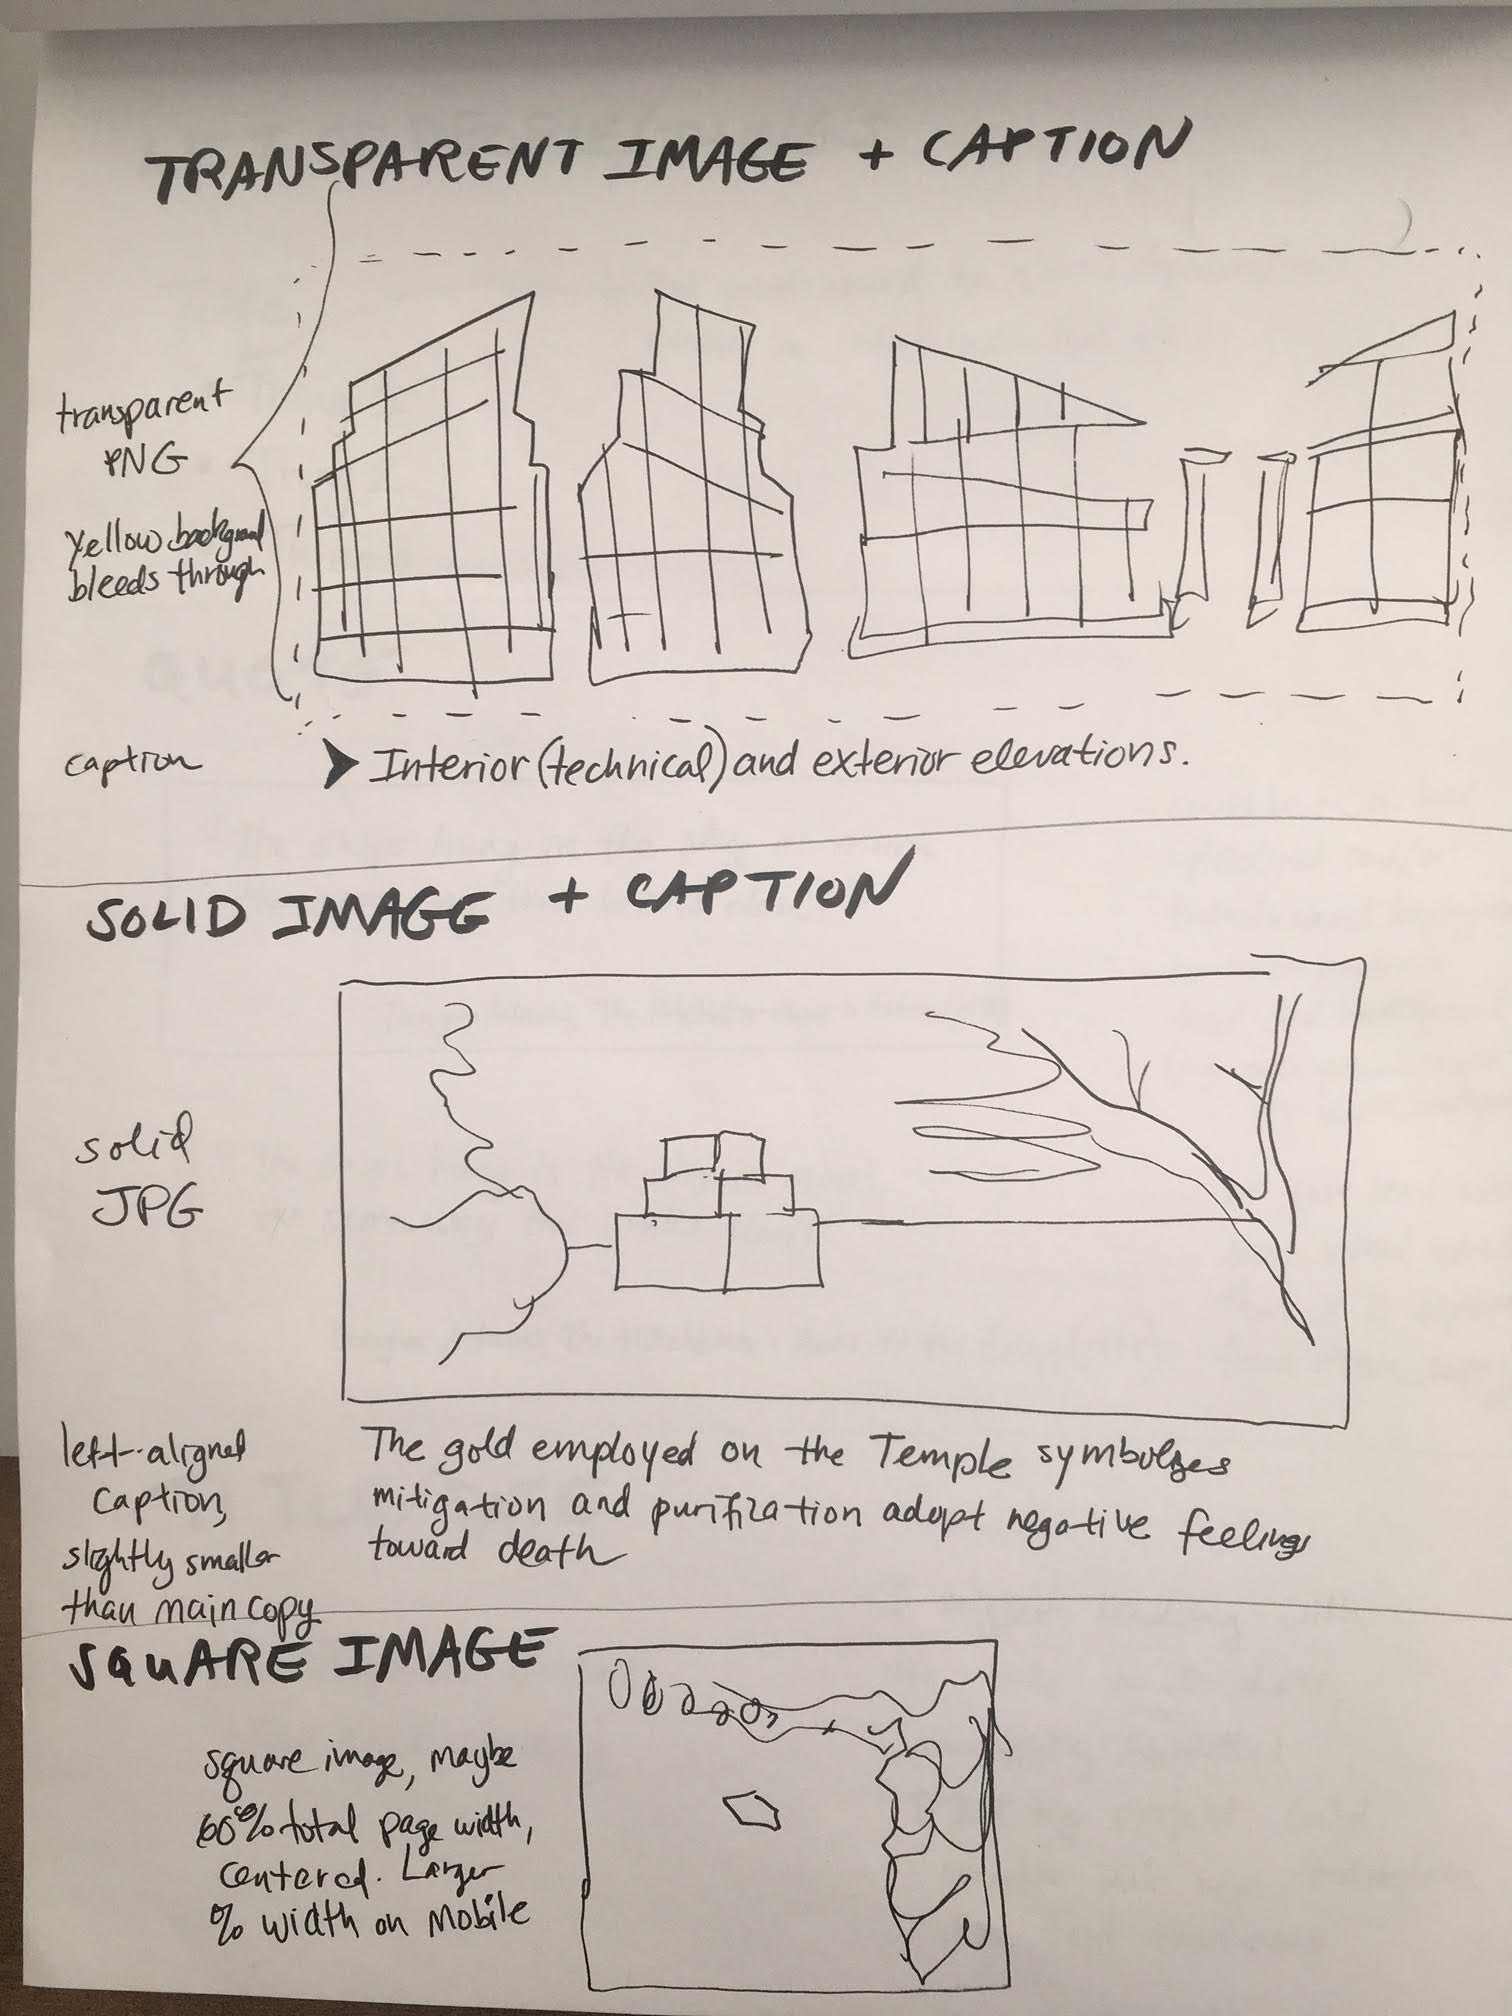 TRANSPARENT IMAGE + CAPTION
transparent
PNG
yellow background
bleeds through
caption
➤ Interior (technical) and exterior elevations.
SOLID IMAGE + CAPTION
solid
JPG
left-aligned
caption,
slightly smaller
than main copy
The gold employed on the Temple symbolizes
mitigation and purifization adopt negative feelings
toward death
SQUARE IMAGE
square image, maybe
60% total page width,
centered. Larger
% width on mobile